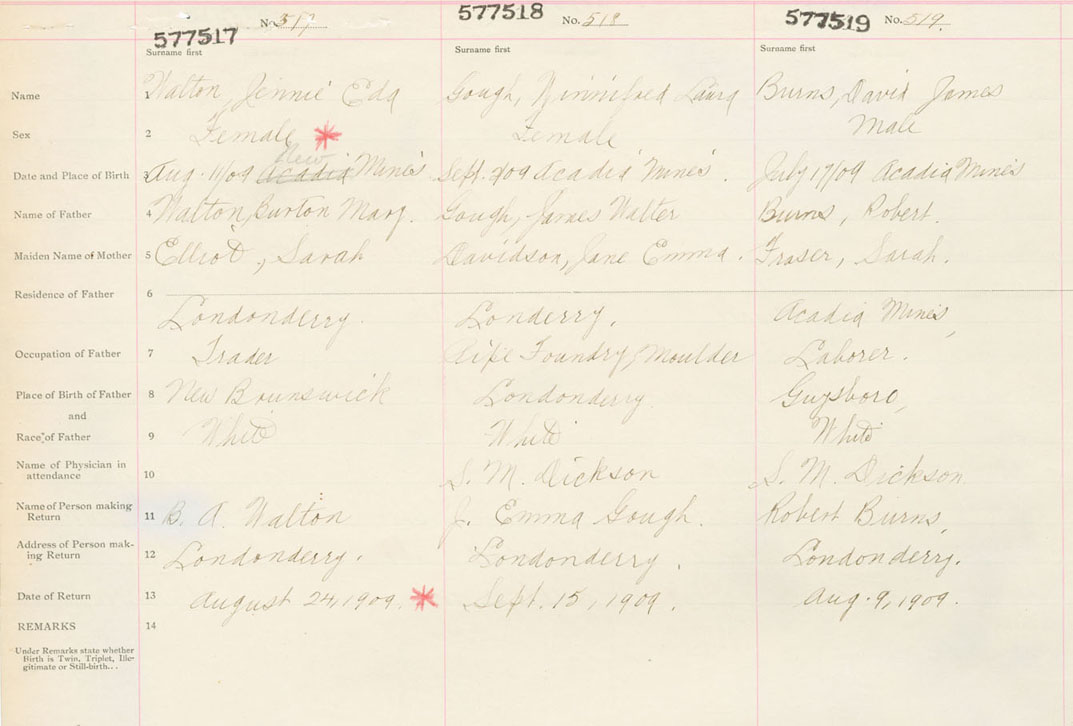 No. 517 577518 No. 518 577519 No. 519.
577517
Surname first Surname first Surname first
Name 1 Walton, Jennie Eda Gough, Winnifred Laura Burns, David James
Sex 2 Female * Female Male
New
Date and Place of Birth 3 Aug. 11/09 Acadia Mines Sept. /09 Acadia Mines. July 17/09 Acadia Mines
Name of Father 4 Walton, Burton Gough, James Walter Burns, Robert.
Maiden Name of Mother 5 Elliot, Sarah Davidson, Jane Emma. Fraser, Sarah.
Residence of Father 6
Londonderry. Londerry. Acadia Mines,
Occupation of Father 7 Trader Pipe Foundry, Moulder Laborer.
Place of Birth of Father 8 New Brunswick Londonderry Guysboro,
and
Race of Father 9 White White White
Name of Physician in
attendance 10 S. M. Dickson S. M. Dickson
Name of Person making
Return 11 B. A. Walton J. Emma Gough. Robert Burns,
Address of Person mak-
ing Return 12 Londonderry. Londonderry. Londonderry.
Date of Return 13 August 24, 1909. * Sept. 15, 1909. Aug. 9, 1909.
REMARKS 14
Under Remarks state whether
Birth is Twin, Triplet, Ille-
gitimate or Still-birth...